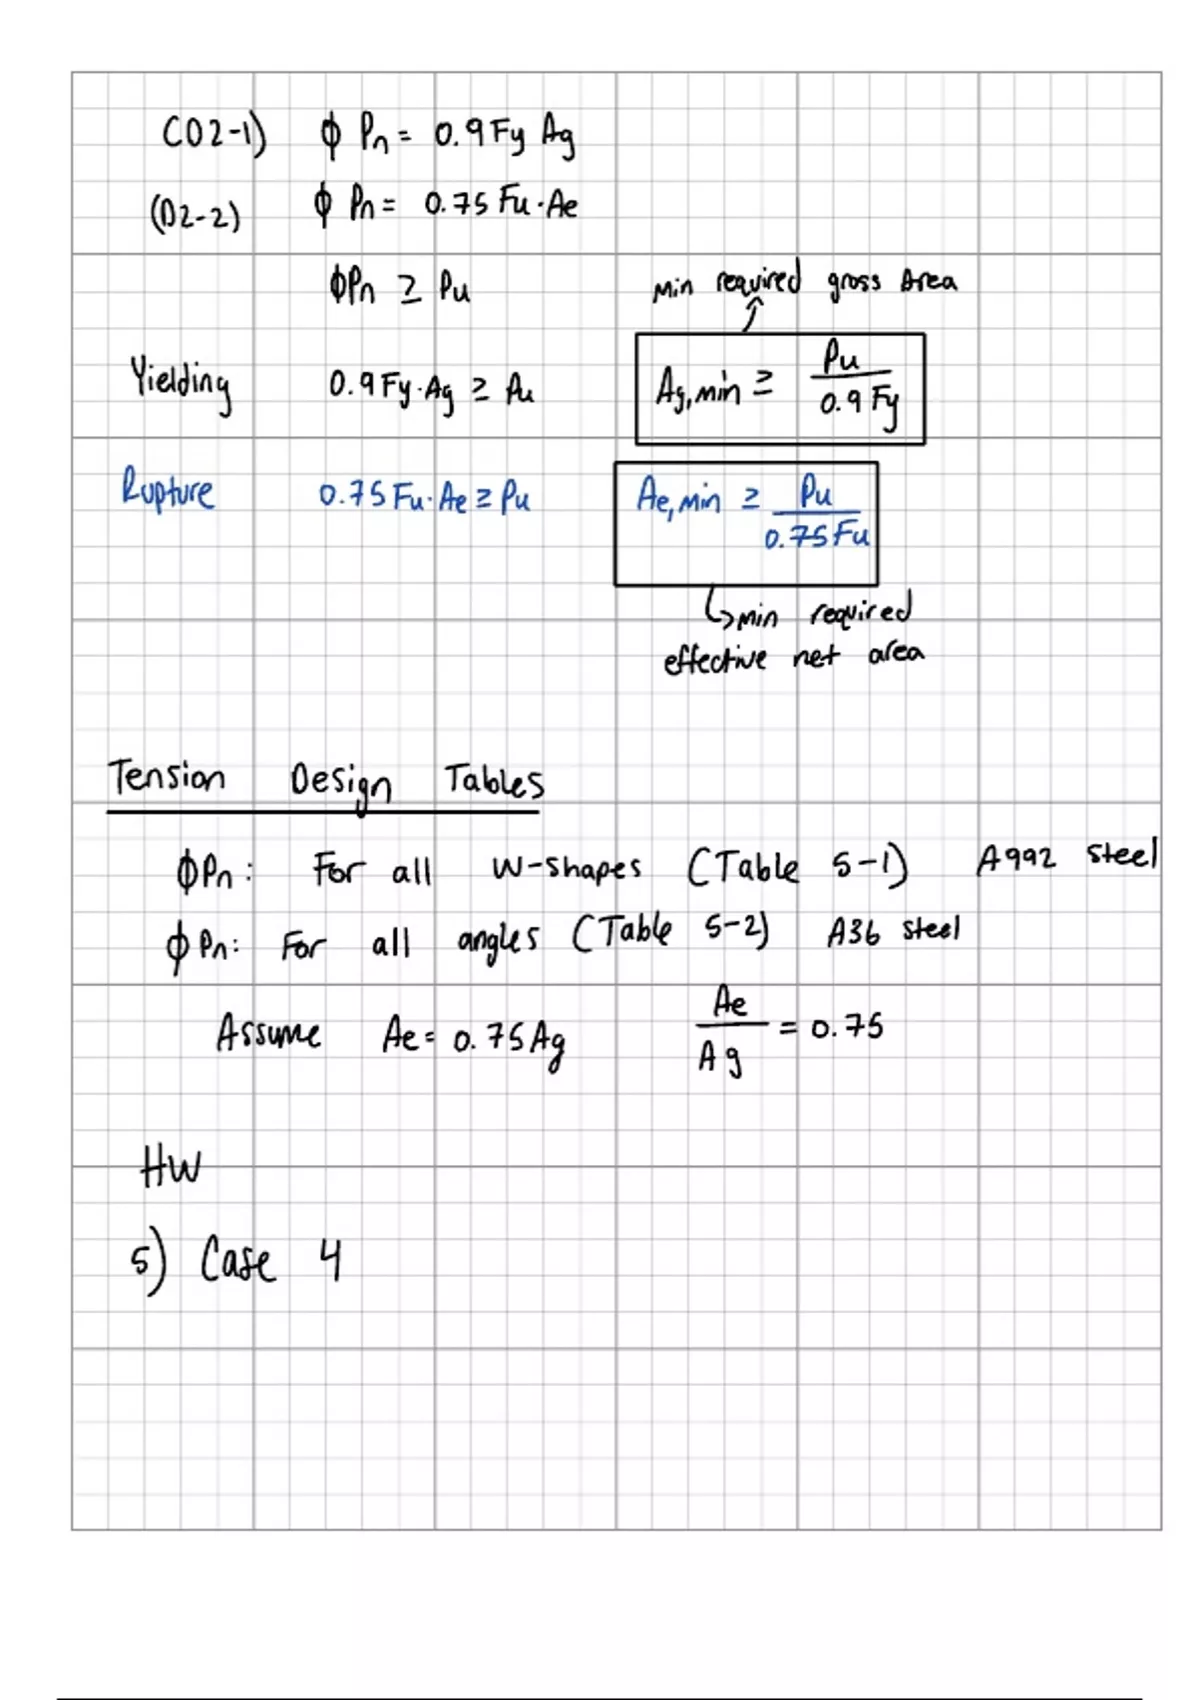 (D2-1) ϕ Pn = 0.9 Fy Ag
(D2-2) ϕ Pn = 0.75 Fu · Ae
ϕPn ≥ Pu
Min required gross Area
Yielding 0.9 Fy · Ag ≥ Pu Ag,min ≥ Pu / 0.9 Fy
Rupture 0.75 Fu · Ae ≥ Pu Ae,min ≥ Pu / 0.75 Fu
↳ min required
effective net area
Tension Design Tables
ϕPn: For all W-shapes (Table 5-1) A992 steel
ϕ Pn: For all angles (Table 5-2) A36 steel
Assume Ae = 0.75 Ag Ae / Ag = 0.75
HW
5) Case 4